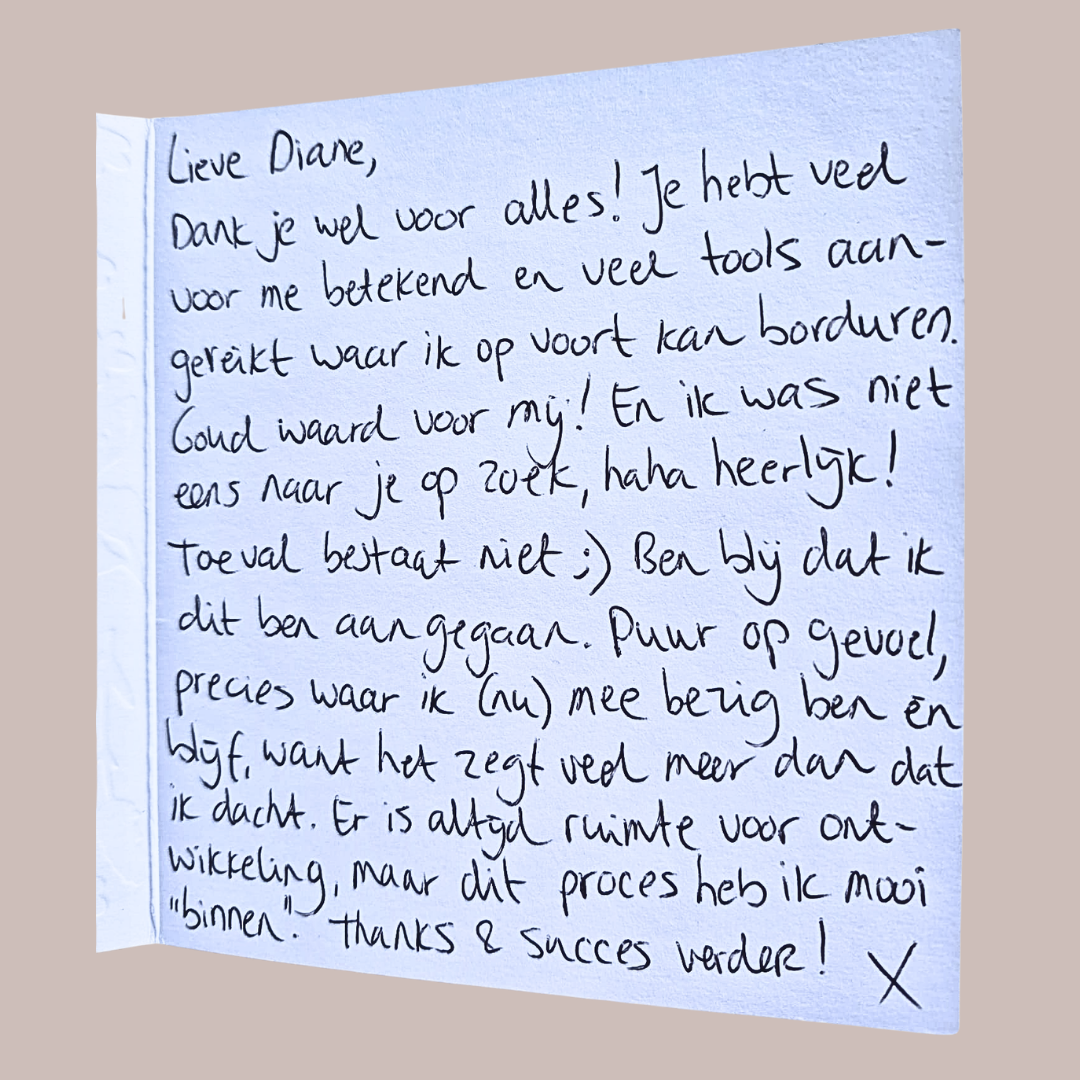 Lieve Diane,
Dank je wel voor alles! Je hebt veel
voor me betekend en veel tools aan-
gereikt waar ik op voort kan borduren.
Goud waard voor mij! En ik was niet
eens naar je op zoek, haha heerlijk!
Toeval bestaat niet ;) Ben blij dat ik
dit ben aangegaan. Puur op gevoel,
precies waar ik (nu) mee bezig ben en
blijf, want het zegt veel meer dan dat
ik dacht. Er is altijd ruimte voor ont-
wikkeling, maar dit proces heb ik mooi
"binnen". Thanks & succes verder!
X